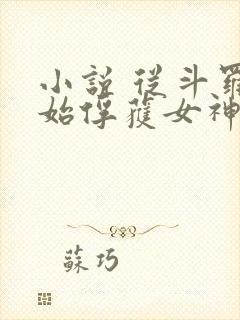 小說 從斗羅
始俘獲女神
蘇巧